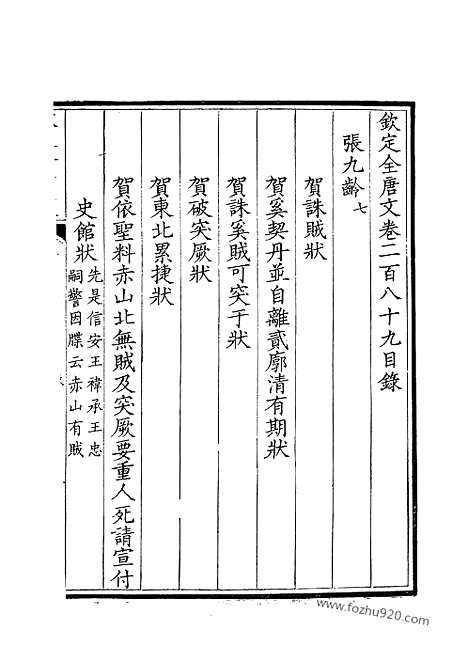 欽定全唐文卷二百八十九目錄
張九齡七
賀誅賊狀
賀奚契丹並自離貳廓清有期狀
賀誅奚賊可突于狀
賀破突厥狀
賀東北累捷狀
賀依聖料赤山北無賊及突厥要重人死請宣付
史館狀
先是信安王禕承王忠
嗣警因牒云赤山有賊
www.fozhu920.com